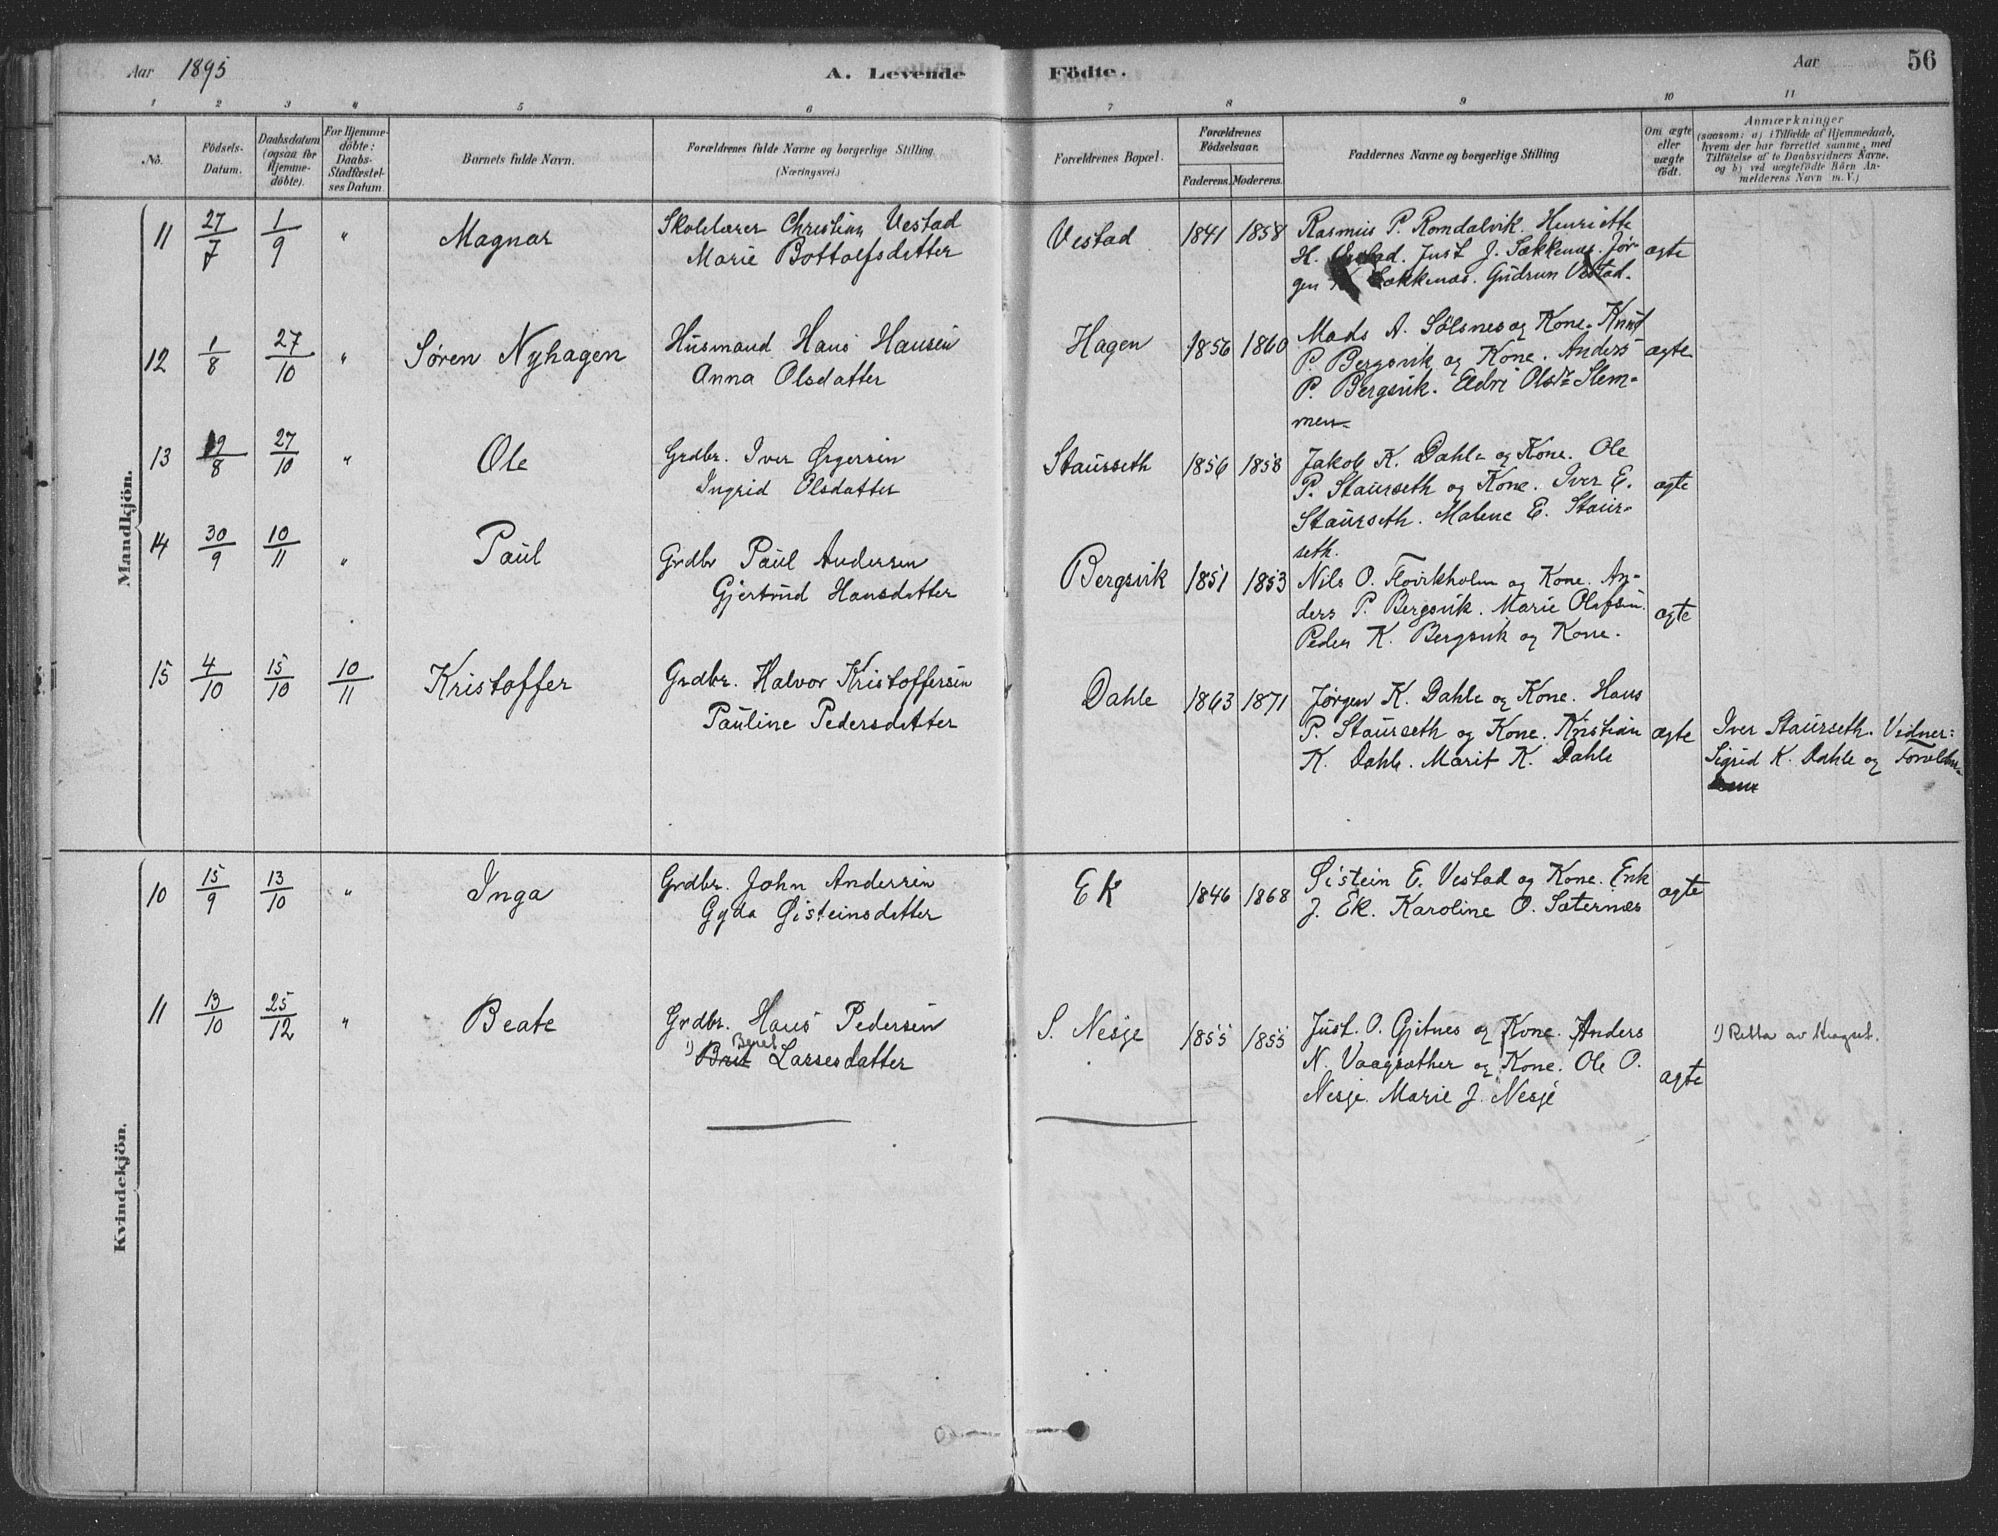 Aar 1895 A. Levende Födte. Aar 56
1 2 3 4 5 6 7 8 9 10 11
No.
Födsels-
Datum.
Daabsdatum
(ogsaa for
Hjemme-
döbte).
For Hjemme-
döbte:
Daabs-
Stadfæstel-
ses Datum.
Barnets fulde Navn.
Forældrenes fulde Navne og borgerlige Stilling
(Næringsvei.)
Forældrenes Bopæl.
Forældrenes
Födselsaar.
Faderens. Moderens.
Faddernes Navne og borgerlige Stilling
Om ægte
eller
uægte
födt.
Anmærkninger
(saasom: a) i Tilfælde af Hjemmedaab,
hvem der har forrettet samme, med
Tilföielse af to Daabsvidners Navne,
og b) ved uægtefödte Börn An-
melderens Navn m. V.)
Mandkjön.
11 27/7 1/9 " Magnar Skolelærer Christian Vestad Vestad 1841 1858 Rasmus P. Romdalvik. Henriette
Marie Bottolfsdatter H. Just J. Sækkenæs. Jør- ægte
gen Sækkenæs. Gudrun Vestad.
12 1/8 27/10 " Søren Nyhagen Husmand Hans Hansen Hagen 1856 1860 Mads A. Sølsnes og Kone. Knut
Anna Olsdatter P. Bergsvik og Kone. Anders ægte
P. Bergsvik. Eldri Olsdr Slem-
men
13 9/8 27/10 " Ole Grdbr. Iver Ørgersen Staurseth 1856 1858 Jakob K. Dahle og Kone. Ole
Ingrid Olsdatter P. Staurseth og Kone. Iver E. ægte
Staurseth. Malene E. Staur-
seth.
14 30/9 10/11 " Paul Grdbr Paul Andersen Bergsvik 1851 1853 Nils O. Flovikholm og Kone. An-
Gjertrud Hansdatter ders P. Bergsvik. Marie Olafsen. ægte
Peder K. Bergsvik og Kone.
15 4/10 15/10 10/11 Kristoffer Grdbr. Halvor Kristoffersen Dahle 1863 1871 Jørgen K. Dahle og Kone. Hans
Pauline Pedersdatter P. Staurseth og Kone. Kristian ægte Iver Staurseth. Vidner:
K. Dahle. Marit K. Dahle Sigrid K. Dahle og
Kvindekjön.
10 15/9 13/10 " Inga Grdbr. John Andersen Ek 1846 1868 Øistein E. Vestad og Kone. Erik ægte
Gyda Øisteinsdatter J. Ek. Karoline O. Sæternæs
11 13/10 25/12 " Beate Grdbr. Hans Pedersen S. Nesje 1855 1855 Just. O. Gjitnes og Kone. Anders 1) Retta av
1) Brit Beret Larsesdatter N. Vaagsæther og Kone. Ole O. ægte
Nesje. Marie J. Nesje